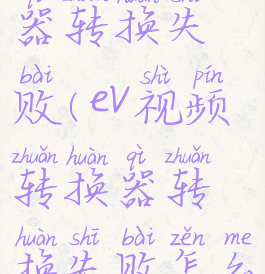 器转换失
bài shì pín
败(ev视频
zhuǎn huàn qì zhuǎn
转换器转
huàn shī bài zěn me
换失败怎么